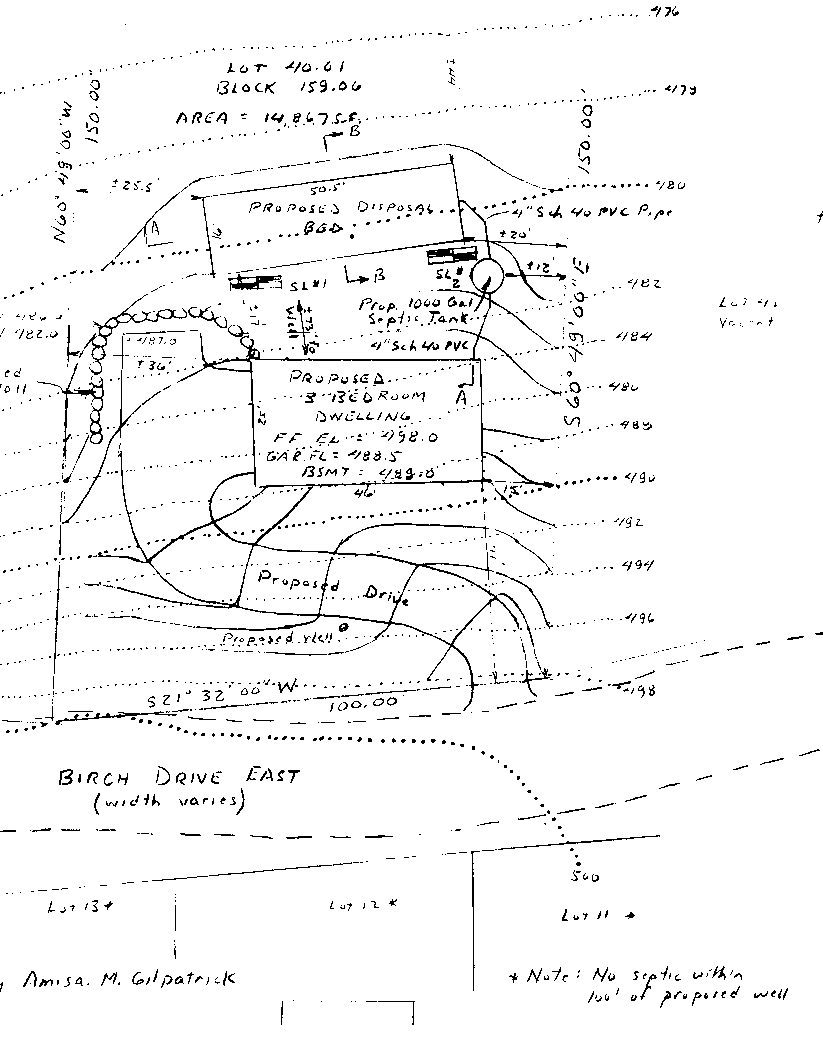 476
LOT 40.01
BLOCK 159.06
478
AREA = 14,867 S.F.
B
N60° 49' 00" W
150.00'
150.00'
±25.5'
50.5'
480
PROPOSED DISPOSAL
BED
4" Sch 40 PVC Pipe
A
16'
±20'
SL#1
B
SL#
2
±12'
482
S 60° 49' 00" E
Prop. 1000 Gal
Septic Tank
Well
Vacant
482.0
487.0
484
4" Sch 40 PVC
±36'
486
PROPOSED
3 BEDROOM
DWELLING
A
32'
FF EL = 498.0
GAR FL = 488.5
BSMT = 489.0
488
490
46'
15'
492
494
Proposed Drive
496
Proposed Well
S21° 32' 00" W
100.00
498
BIRCH DRIVE EAST
(width varies)
500
LOT 13*
LOT 12 *
LOT 11 *
Amisa. M. Gilpatrick
* Note: No septic within
100' of proposed well